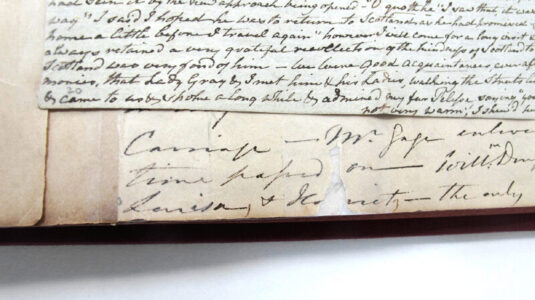 had seen it by the new approach being opened. "O quoth he "I saw that, it was
way" I said I hoped he was to return to Scotland as he had promised
home a little before I travel again" however I will come for a long visit &
always retained a very grateful recollection of the kindness of Scotland to
Scotland was very fond of him — we were good acquaintances ever after
mories, that Lady Gray & I met him & his Ladies, walking the Streets
& came to us & spoke a long while & admired my fur Pelisse saying "you
not very warm, I should
Carriage — Mr. Gage
time passed on — Willm.
Louisa, & Harriet — the only